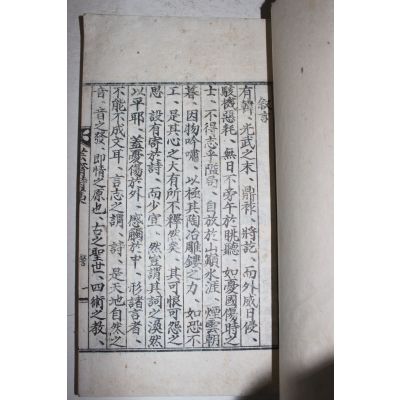 敍言
有韓、光武之末、鼎祚、將訖、而外威日侵、
駭機惡耗、無日不旁午於眺聽、如憂國傷時之
士、不得志乎階前、自放於山巓水涯、煙雲朝
暮、因物吟嘯、以極其陶冶雕鏤之力、如恐不
工、是其心之大有所不釋然矣、其可恨可怨之
思、設有寄於詩、而少宣、然豈謂其詞之渙然
以平耶、蓋憂傷於外、感觸於中、形諸言者、
不能不成文耳、言志之謂、詩、是天地自然之
音、音之發、即情之原也、古之聖世、四術之敎、